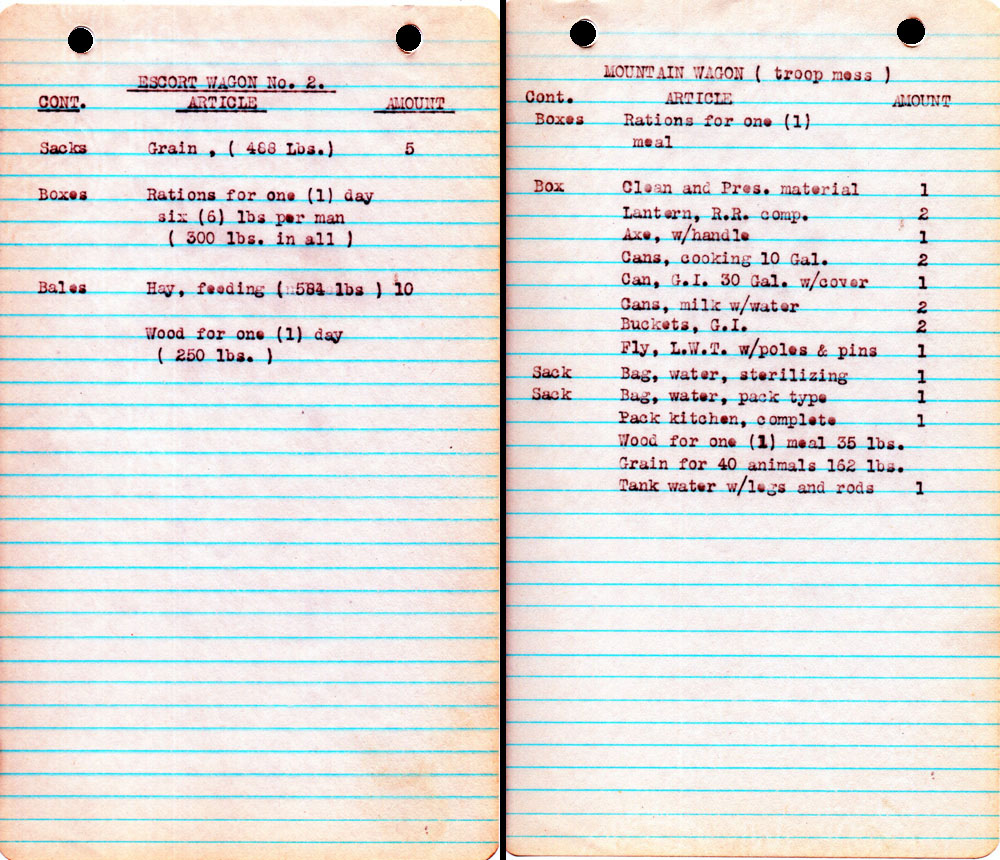 ESCORT WAGON No. 2.
CONT. ARTICLE AMOUNT
Sacks Grain , ( 488 Lbs.) 5
Boxes Rations for one (1) day
six (6) lbs per man
( 300 lbs. in all )
Bales Hay, feeding ( 584 lbs ) 10
Wood for one (1) day
( 250 lbs. )
MOUNTAIN WAGON ( troop mess )
Cont. ARTICLE AMOUNT
Boxes Rations for one (1)
meal
Box Clean and Pres. material 1
Lantern, R.R. comp. 2
Axe, w/handle 1
Cans, cooking 10 Gal. 2
Can, G.I. 30 Gal. w/cover 1
Cans, milk w/water 2
Buckets, G.I. 2
Fly, L.W.T. w/poles & pins 1
Sack Bag, water, sterilizing 1
Sack Bag, water, pack type 1
Pack kitchen, complete 1
Wood for one (1) meal 35 lbs.
Grain for 40 animals 162 lbs.
Tank water w/legs and rods 1